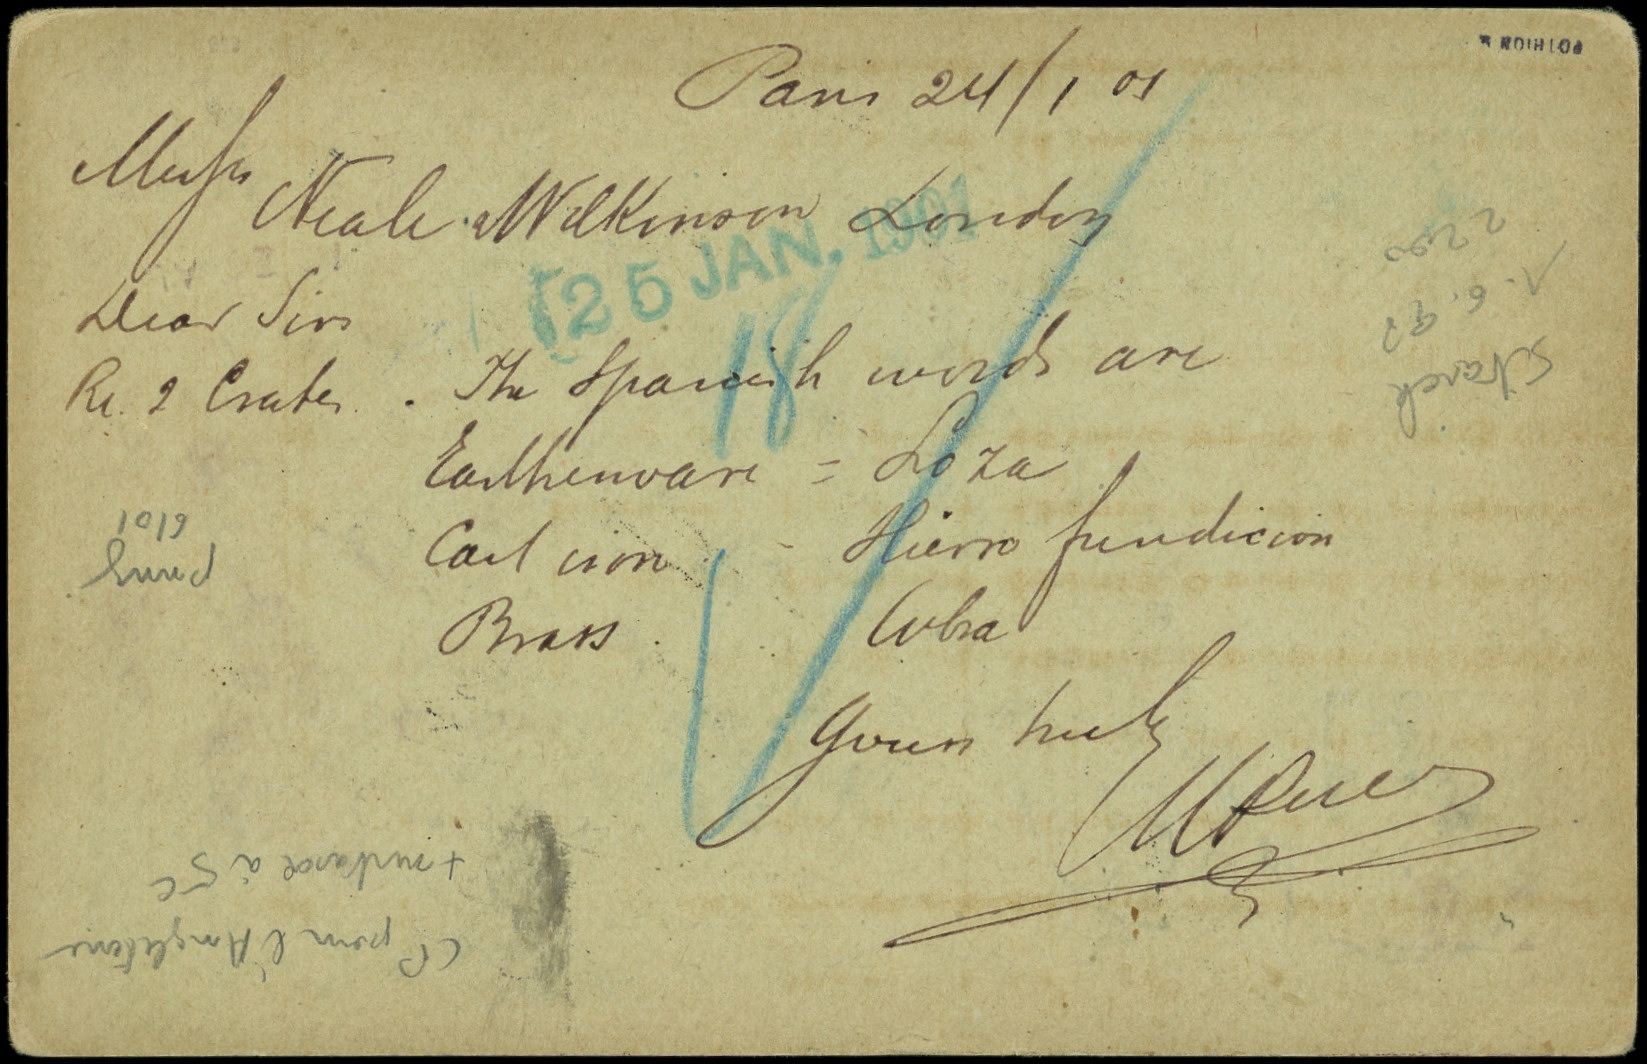 Paris 24/1 01
Messrs
Neale Wilkinson London
25 JAN. 1901
Dear Sirs
18
Re. 2 Crates. The Spanish words are
Earthenware = Loza
Cast iron - Hierro fundicion
Brass. Cobra
Yours truly
POTHION
2200
1.6.92
6101
+ surtaxe à 5c
CP pour l'Angleterre